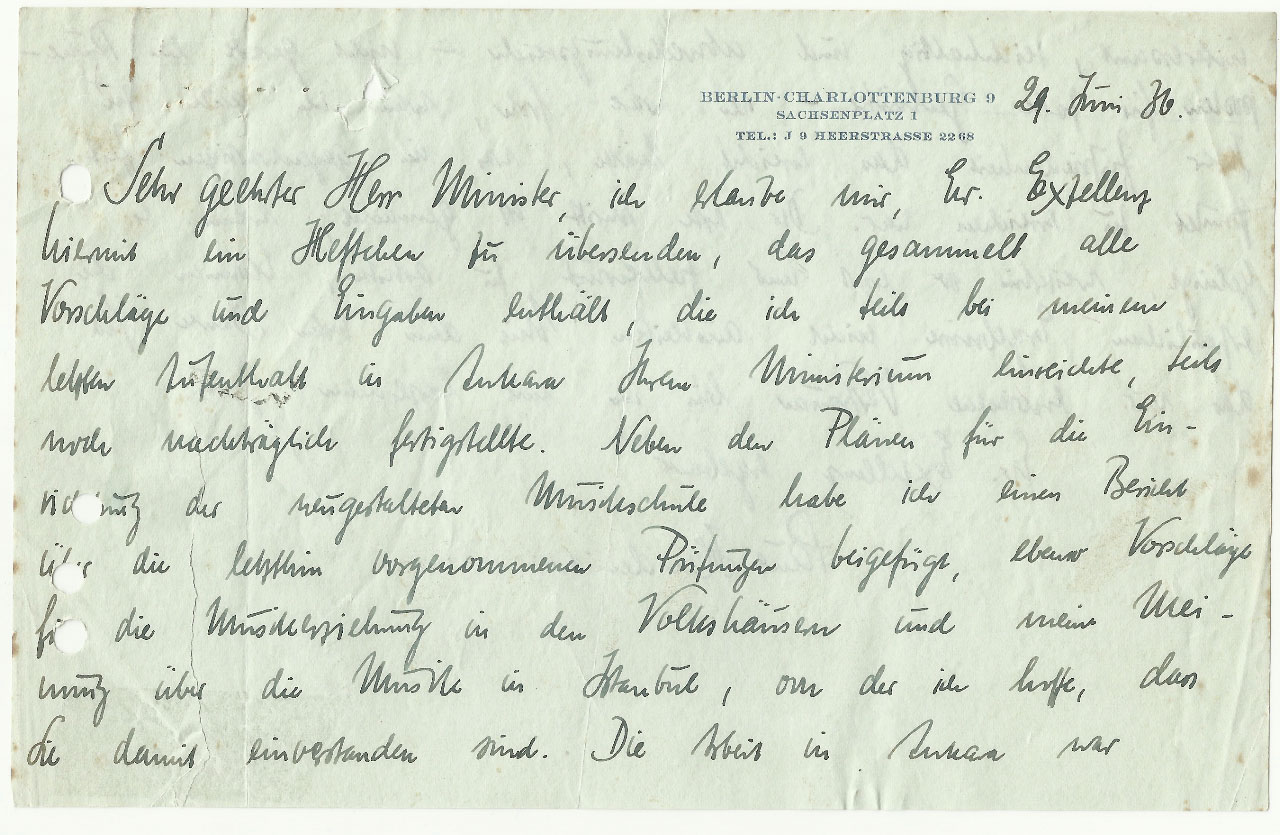 BERLIN-CHARLOTTENBURG 9
SACHSENPLATZ 1
TEL.: J 9 HEERSTRASSE 2268
29. Juni 36.
Sehr geehrter Herr Minister, ich erlaube mir, Ew. Exzellenz
hiermit ein Heftchen zu übersenden, das gesammelt alle
Vorschläge und Eingaben enthält, die ich teils bei meinem
letzten Aufenthalt in Ankara Ihrem Ministerium einreichte, teils
noch nachträglich fertigstellte. Neben den Plänen für die Ein-
richtung der neugestalteten Musikschule habe ich einen Bericht
über die letzthin vorgenommenen Prüfungen beigefügt, ebenso Vorschläge
für die Musikerziehung in den Volkshäusern und meine Mei-
nung über die Musik in Istanbul, von der ich hoffe, dass
Sie damit einverstanden sind. Die Arbeit in Ankara war